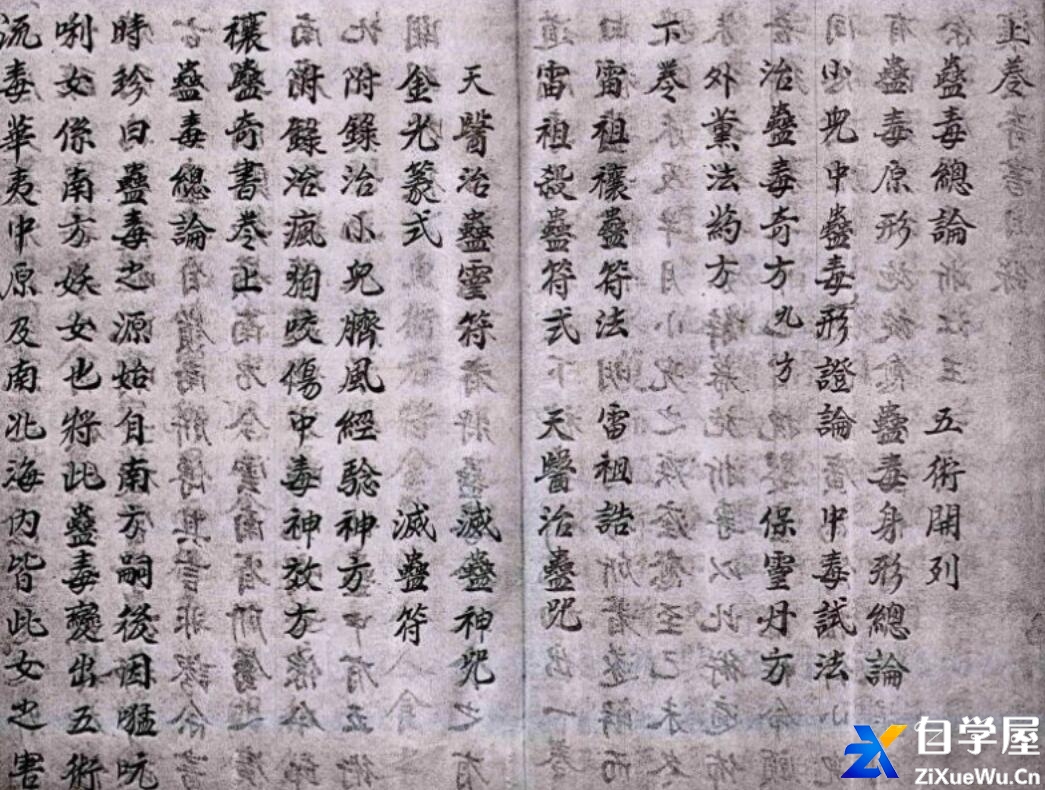 上卷
蠱毒總論 五術開列
蠱毒原形 蠱毒身形總論
小兒中蠱毒形證論 中毒試法
治蠱毒奇方九方 保靈丹方
外薰法药方
下卷
雷祖禳蠱符法 雷祖誥
雷祖殺蠱符式 天醫治蠱咒
天醫治蠱靈符 滅蠱神咒
金光篆式 滅蠱符
附錄治小兒臍風經驗神方
附錄治瘋狗咬傷中毒神效方
禳蠱奇書卷上
蠱毒總論
時珍曰蠱毒之源始自南方嗣後因
唎女係南方妖女也將此蠱毒變出五術
流毒華夷中原及南北海內皆此女之害
自学屋
ZiXueWu.Cn